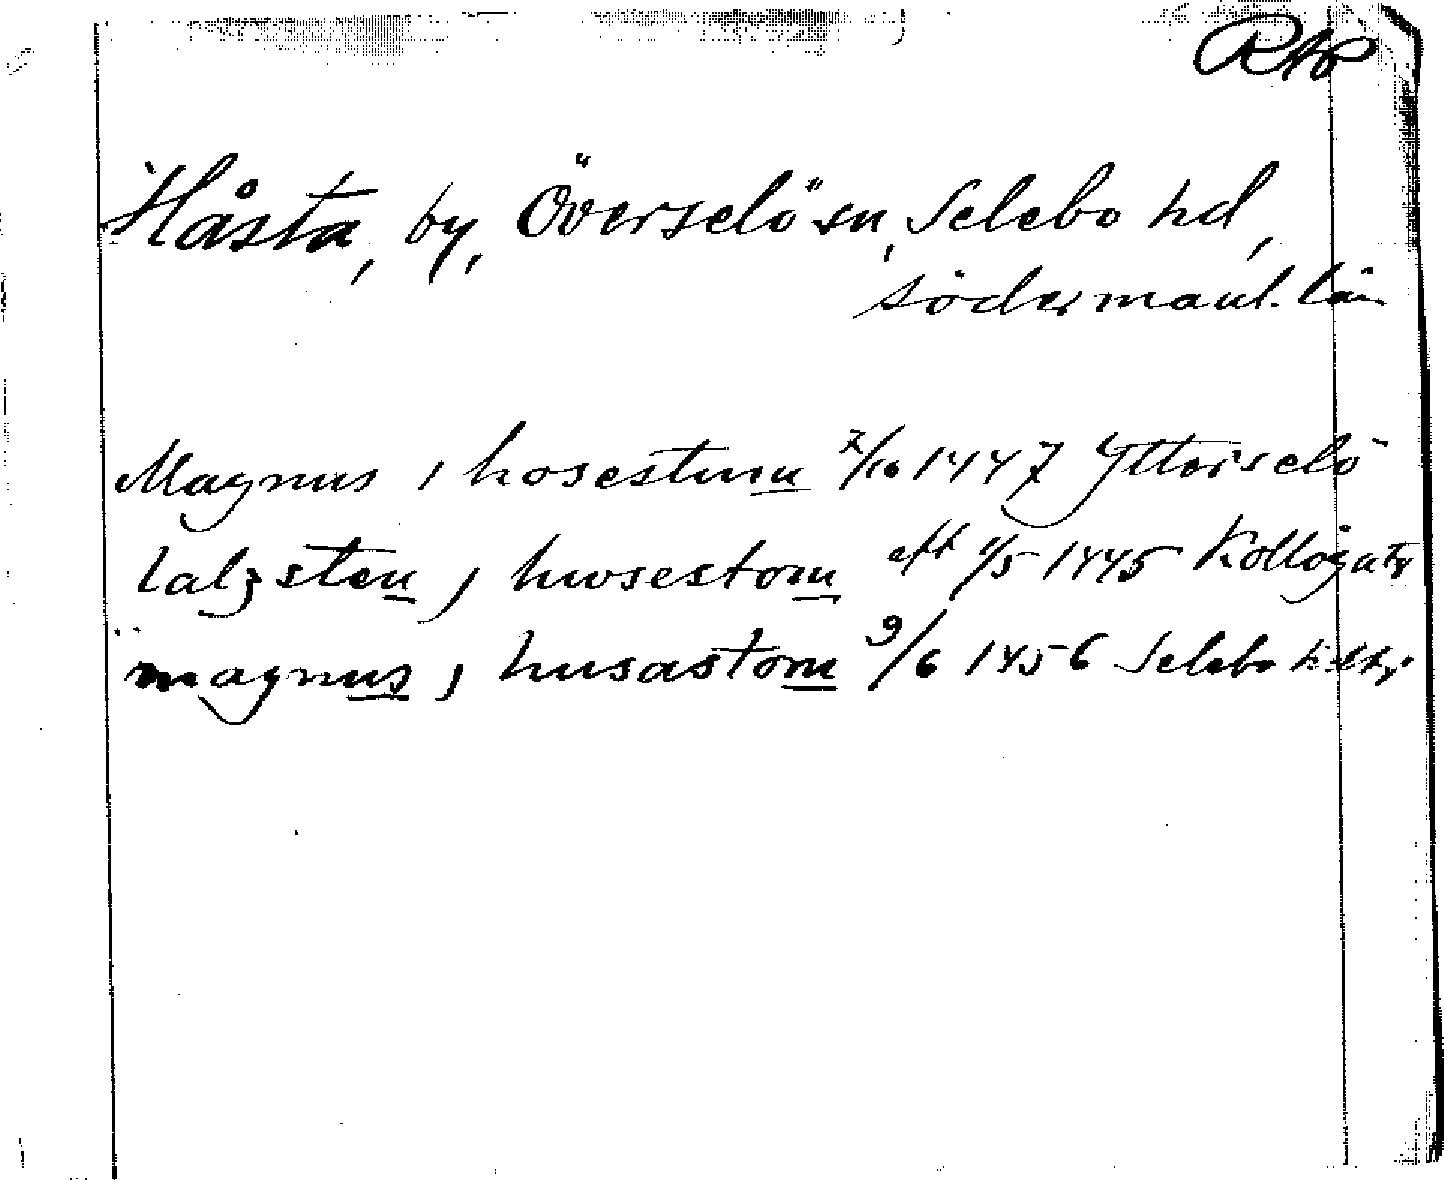 Håsta, by, Överselö sn, Selebo hd,
Södermanl. län
Magnus i hosestum 2/10 1447 Ytterselö
Lalzsten j hwsestom eft 1/5 1445
magnus j husastom 9/6 1456 Selebo